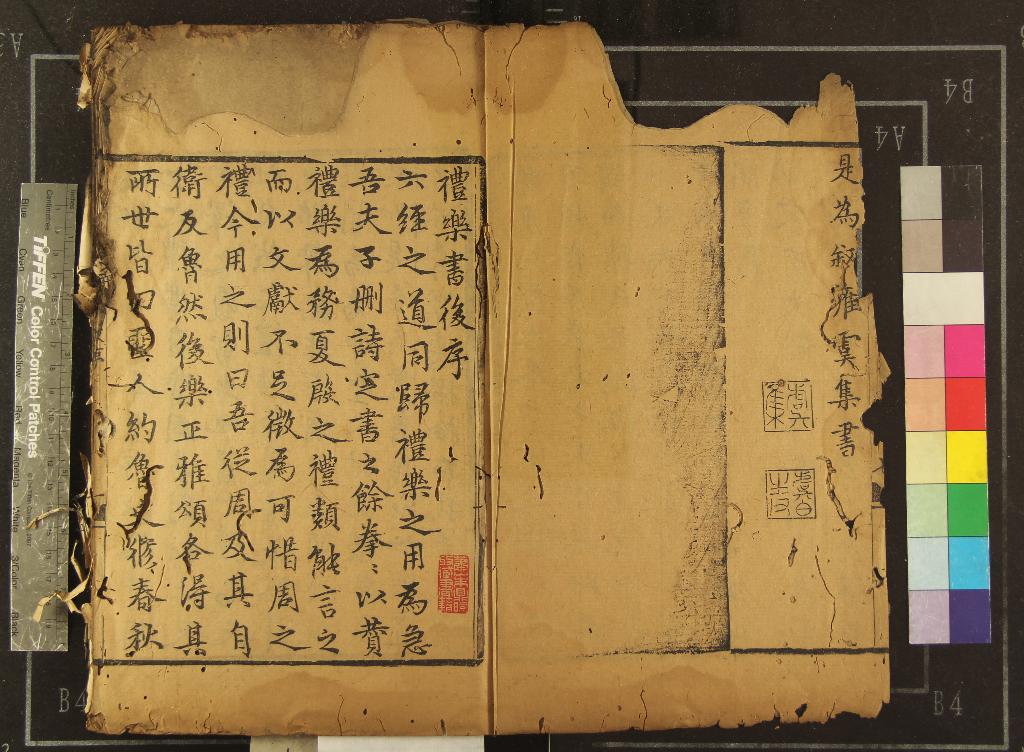 是為叙雍虞集書
禮樂書後序
六經之道同歸禮樂之用為急
吾夫子刪詩定書之餘拳〻以贊
禮樂為務夏殷之禮類能言之
而以文獻不足徵為可惜周之
禮今用之則曰吾從周及其自
衛反魯然後樂正雅頌各得其
所世皆曰聖人約魯史脩春秋
TIFFEN Color Control Patches
Centimetres
Inches
Blue
Cyan
Green
Yellow
Red
Magenta
White
3/Color
Black
B4
A4
B4
B4
A3